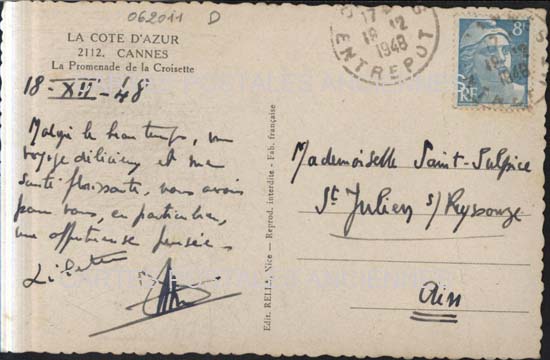 062011 D
LA COTE D'AZUR
2112. CANNES
La Promenade de la Croisette
18-XII-48
Malgré le beau temps, un
voyage délicieux et une
santé florissante, nous avons
pour vous, en particulier,
une affectueuse pensée.
Edit. RELLA, Nice — Reprod. interdite - Fab. française
17
18-12
1948
ENTREPOT
8F
RF
Mademoiselle Saint-Sulpice
St Julien s/ Reyssouze
Ain
CARTES POSTALES ANCIENNES